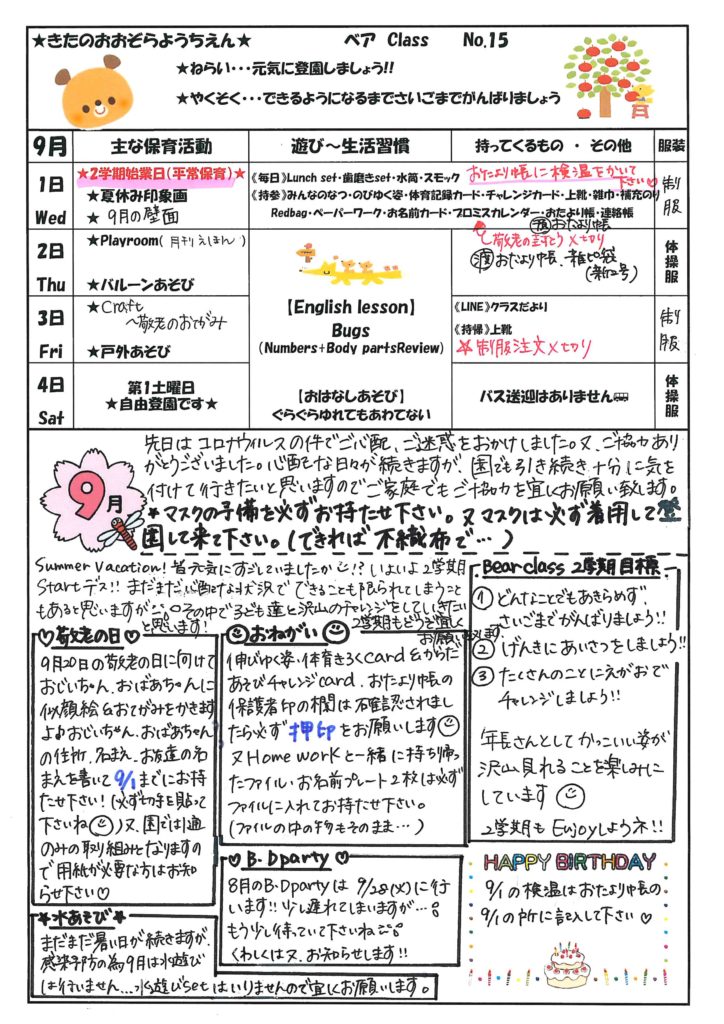 ★きたのおおぞらようちえん★ ベア Class No.15
★ねらい・・・元気に登園しましょう!!
★やくそく・・・できるようになるまでさいごまでがんばりましょう
9月 主な保育活動 遊び～生活習慣 持ってくるもの ・ その他 服装
1日 Wed
★2学期始業日(平常保育)★
★夏休み印象画
★ 9月の壁面
《毎日》Lunch set・歯磨きset・水筒・スモック
おたより帳に検温をかいて下さい♡
《持参》みんなのなつ・のびゆく姿・体育記録カード・チャレンジカード・上靴・雑巾・補充のり
Redbag・ペーパーワーク・お名前カード・プロミスカレンダー・おたより帳・連絡帳
制服
2日 Thu
★Playroom(月刊えほん)
★バルーンあそび
おたより帳
敬老の封とう〆切り
おたより帳、雑ピ袋
(新2号)
体操服
【English lesson】
Bugs
(Numbers+Body partsReview)
3日 Fri
★Craft
～敬老のおてがみ
★戸外あそび
《LINE》クラスだより
《持帰》上靴
☆制服注文〆切り
制服
4日 Sat
第1土曜日
★自由登園です★
【おはなしあそび】
ぐらぐらゆれてもあわてない
バス送迎はありません
体操服
9月
先日は コロナウイルスの件でご心配、ご迷惑をおかけしました。又、ご協力あり
がとうございました。心配な日々が続きますが、園でも引き続き十分に気を
付けて行きたいと思いますのでご家庭でもご協力を宜しくお願い致します。
★マスクの予備を必ずお持たせ下さい。又マスクは必ず着用して登
園して来て下さい。(できれば 不織布で…)
Summer Vacation! 皆元気にすごしていましたか!? いよいよ2学期
Startデス!! まだまだ心配な状況で できることも限られてしまうこと
もあると思いますが…。その中で子ども達と沢山のチャレンジをしていきたい
と思います!
2学期もどうぞ宜しく
お願い致します。
♡敬老の日♡
9月20日の敬老の日に向けて
おじいちゃん、おばあちゃんに
似顔絵&おてがみをかきます
よ♪おじいちゃん、おばあちゃん
の住所、名まえ、お友達の名
まえを書いて9/1までにお持
たせ下さい! (必ず切手を貼って
下さいね) 又、園では1通
のみの取り組みとなりますの
で用紙が必要な方はお知
らせ下さい♡
おねがい
伸びゆく姿・体育きろくcard&からだ
あそびチャレンジcard、おたより帳の
保護者印の欄は不確認されまし
たら必ず 押印をお願いします
又Home workと一緒に持ち帰っ
たファイル・お名前プレート2枚は必ず
ファイルに入れてお持たせ下さい。
(ファイルの中の物もそのまま…)
Bear class 2学期目標
① どんなことでもあきらめず、
さいごまでがんばりましょう!!
② げんきにあいさつをしましょう!!
③ たくさんのことにえがおで
チャレンジしましょう!!
年長さんとしてかっこいい姿が
沢山見れることを楽しみに
しています
2学期も Enjoyしようネ!!
♡B・Dparty♡
8月のB・Dpartyは 9/28(火)に行
います!! 少し遅れてしまいますが…。
もう少し待っていて下さいね
くわしくは又、お知らせします!!
HAPPY BIRTHDAY
9/1の検温はおたより帳の
9/1の所に記入して下さい♡
★水あそび★
まだまだ暑い日が続きますが、
感染予防の為9月は水遊び
は行いません…水遊びsetはいりませんので宜しくお願いします。